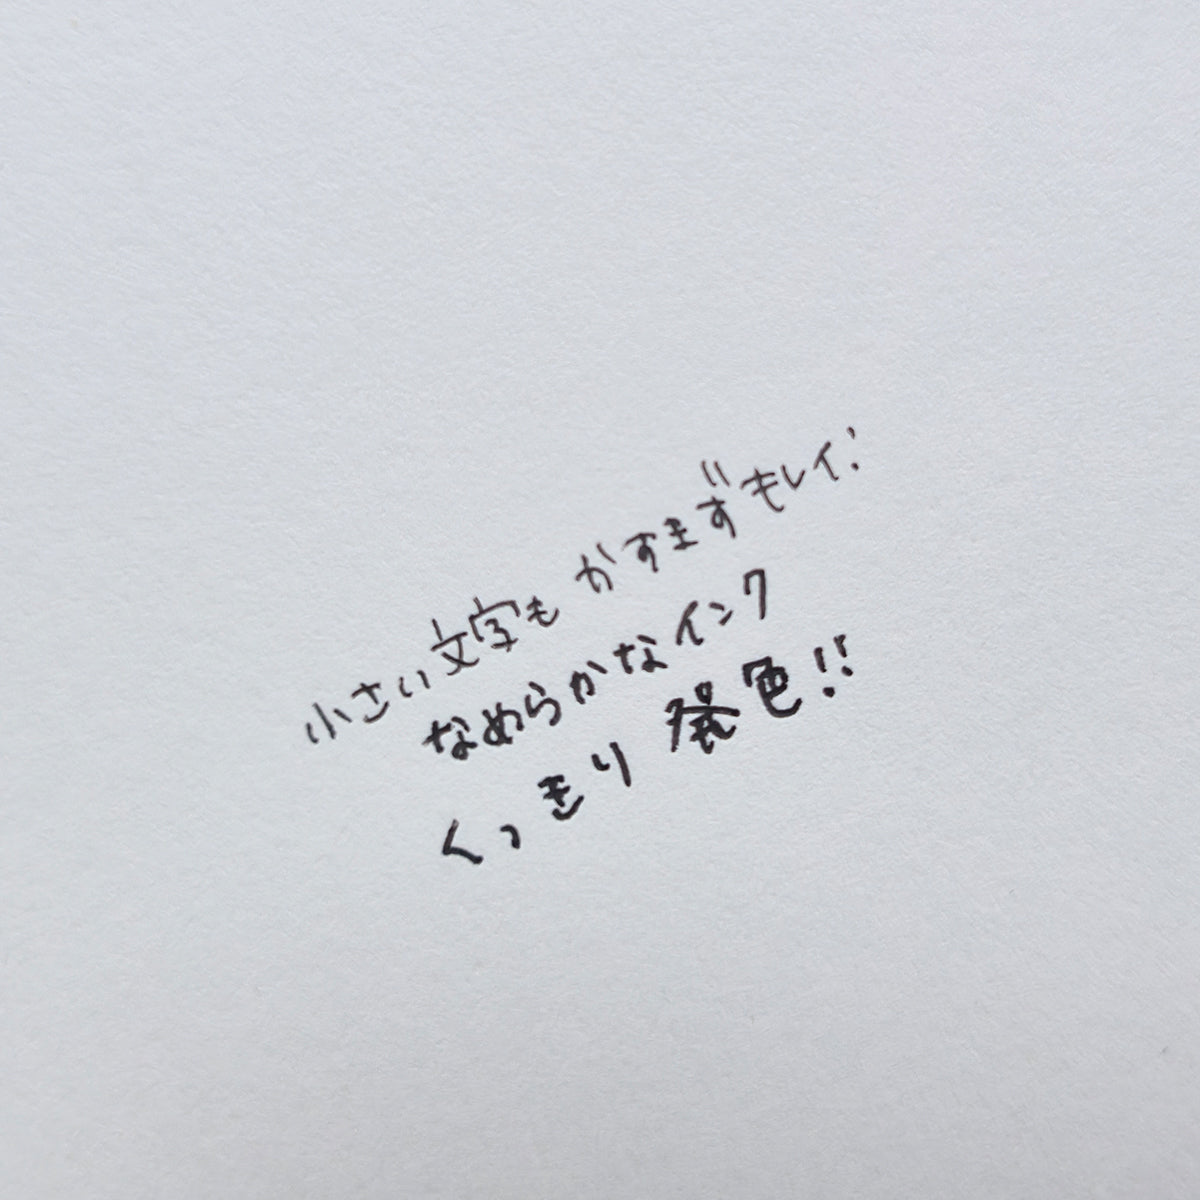 小さい文字も かすまずキレイ!
なめらかなインク
くっきり 発色!!